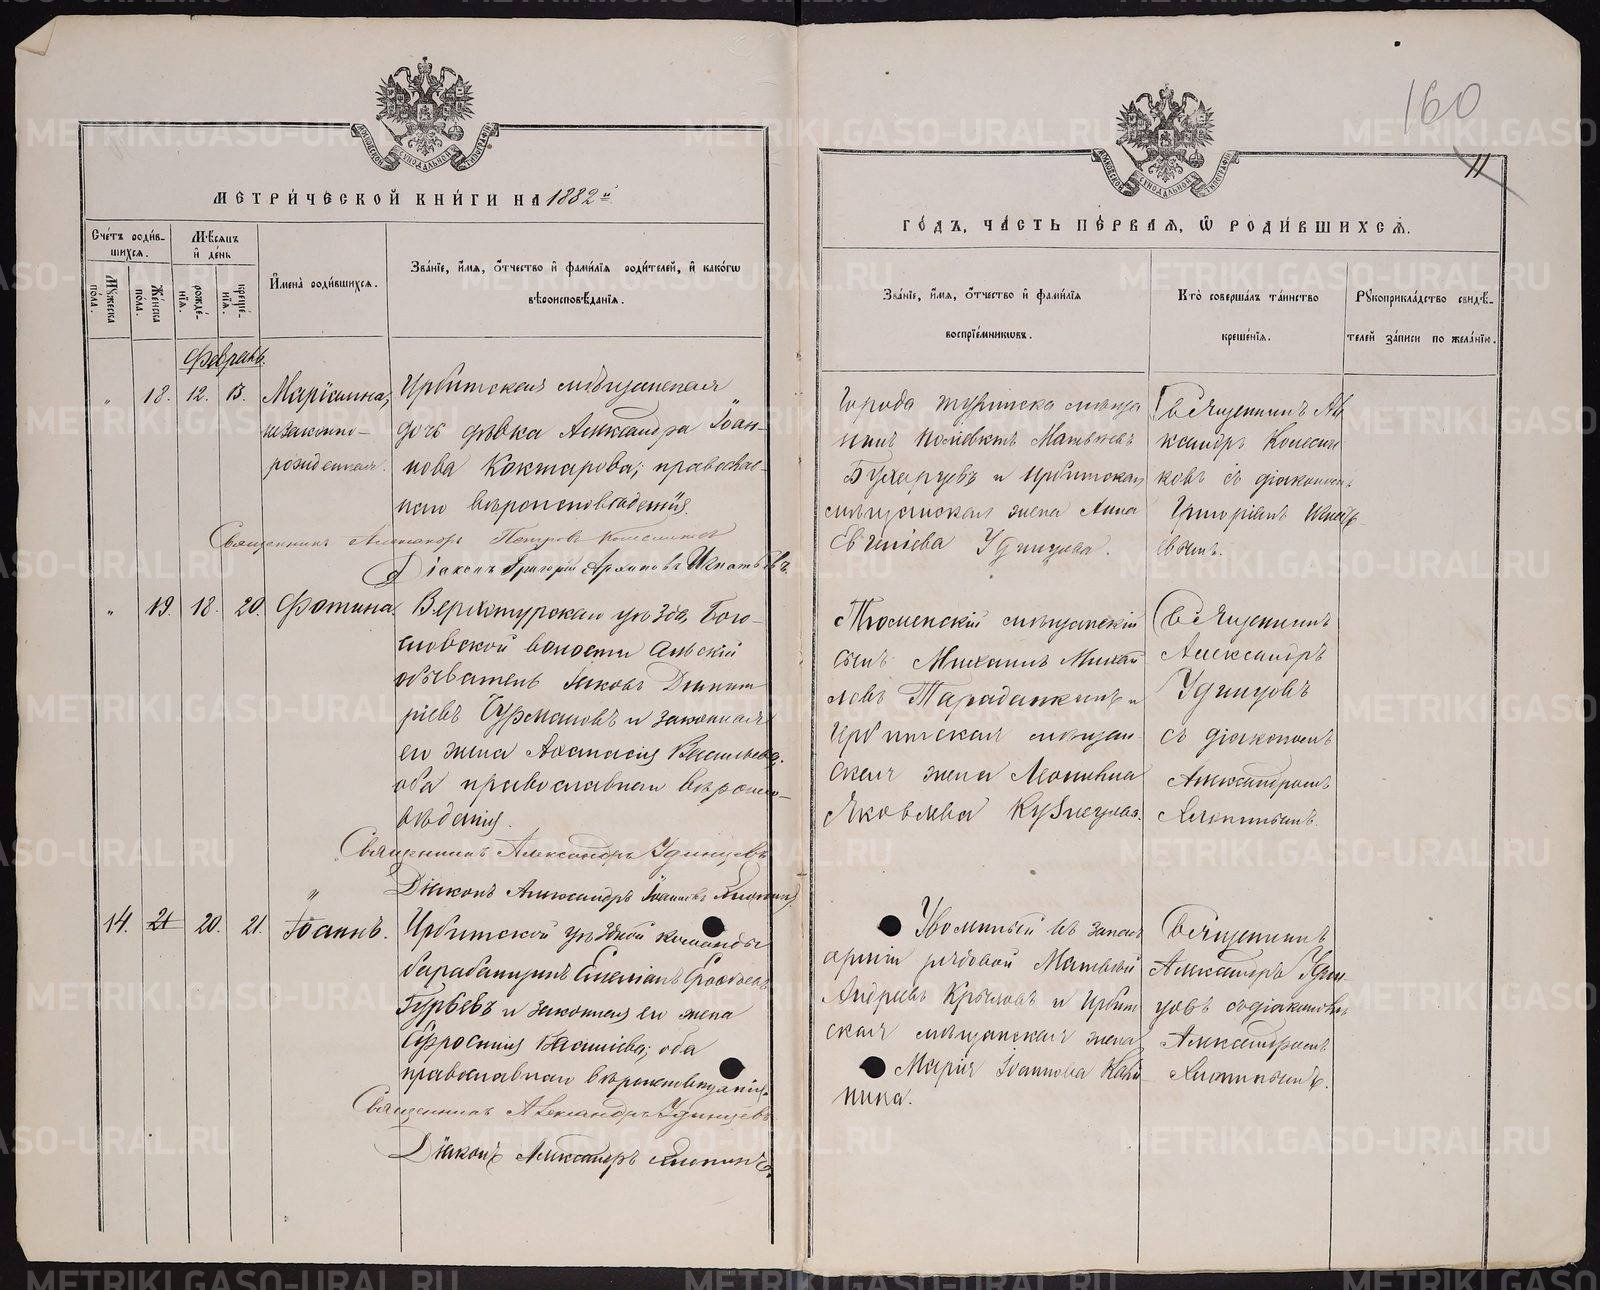 160
11
МЕТРИ́ЧЕСКОЙ КНИ́ГИ НА 1882й
ГО́ДЪ, ЧА́СТЬ ПЕ́РВАЯ, Ѡ РОДИ́ВШИХСЯ.
Сче́тъ роди́в-
шихся.
Му́жеска по́ла.
Же́нска по́ла.
Мѣ́сяцъ
и де́нь
рожде́-
нія.
креще́-
нія.
И҆мена̀ роди́вшихся.
Зва́ніе, и҆́мя, ѻ҆́тчество и҆ фами́лія роди́телей, и҆ како́гѡ
вѣроисповѣ́данія.
Зва́ніе, и҆́мя, ѻ҆́тчество и҆ фами́лія
воспріе́мникѡвъ.
Кто̀ соверша́лъ та́инство
креще́нія.
Рꙋкоприкла́дство свидѣ́-
телей за́писи по жела́нію.
Февраль.
" 18. 12. 13. Маріамна,
незаконно-
рожденная.
Ирбитская мѣщанская
дочь дѣвка Александра Іоан-
нова Кокшарова; православ-
наго вѣроисповѣданія.
Священникъ Александръ Петровъ Колесниковъ
Діаконъ Григорій Архиповъ Игнатьевъ.
Города Туринска мѣща
нинъ Матвѣевъ
Бухарцевъ и Ирбитская
мѣщанская жена Анна
Евгеніева Удинцова.
Священникъ Але
ксандръ Колесни
ковъ съ діакономъ
Григоріемъ Игнать-
евымъ.
" 19. 18. 20. Фотина.
Верхотурскаго уѣзда, Бого-
словской волости сельскій
обыватель Іаковъ Димит
ріевъ Бурмановъ и законная
его жена Аѳанасія Васильева;
оба православнаго вѣроиспо-
вѣданія.
Священникъ Александръ Удинцевъ
Діаконъ Александръ Іоанновъ Ляпинъ
Тюменскій мѣщанскій
сынъ Михаилъ Михай
ловъ Тараданкинъ и
Ирбитская мѣщан-
ская жена
Яковлева Кузнецова.
Священникъ
Александръ
Удинцовъ
съ діакономъ
Александромъ
"
14. 21 20. 21. Іоаннъ.
Ирбитской уѣздной команды
барабанщикъ Емеліанъ
Гурьевъ и законная его жена
Ефросинія Васильева; оба
православнаго вѣроисповѣданія.
Священникъ Александръ Удинцевъ
Діаконъ Александръ
Уволенный въ запасъ
арміи рядовой Матвѣй
Андреевъ Крыловъ и Ирбит
ская мѣщанская жена
Марія Іоаннова Кали
нина.
Священникъ
Александръ Удин
цовъ съ діакономъ
Александромъ